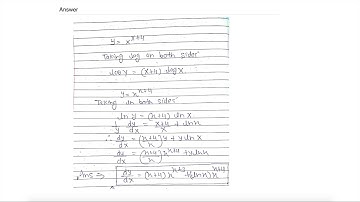 Answer
y = x^{x+4}
Taking log on both sides
log y = (x+4) log x
y = x^{x+4}
Taking ln both sides
ln y = (x+4) ln x
1/y dy/dx = x+4/x + ln x
∴ dy/dx = (x+4/x) y + y ln x
dy/dx = (x+4/x) x^{x+4} + y ln x
Ans ⇒ dy/dx = (x+4) x^{x+3} + (ln x) x^{x+4}